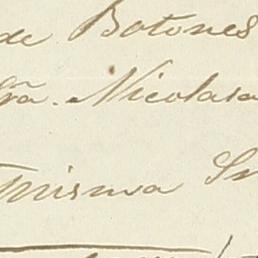 de Botones
ra. Nicolasa
misma